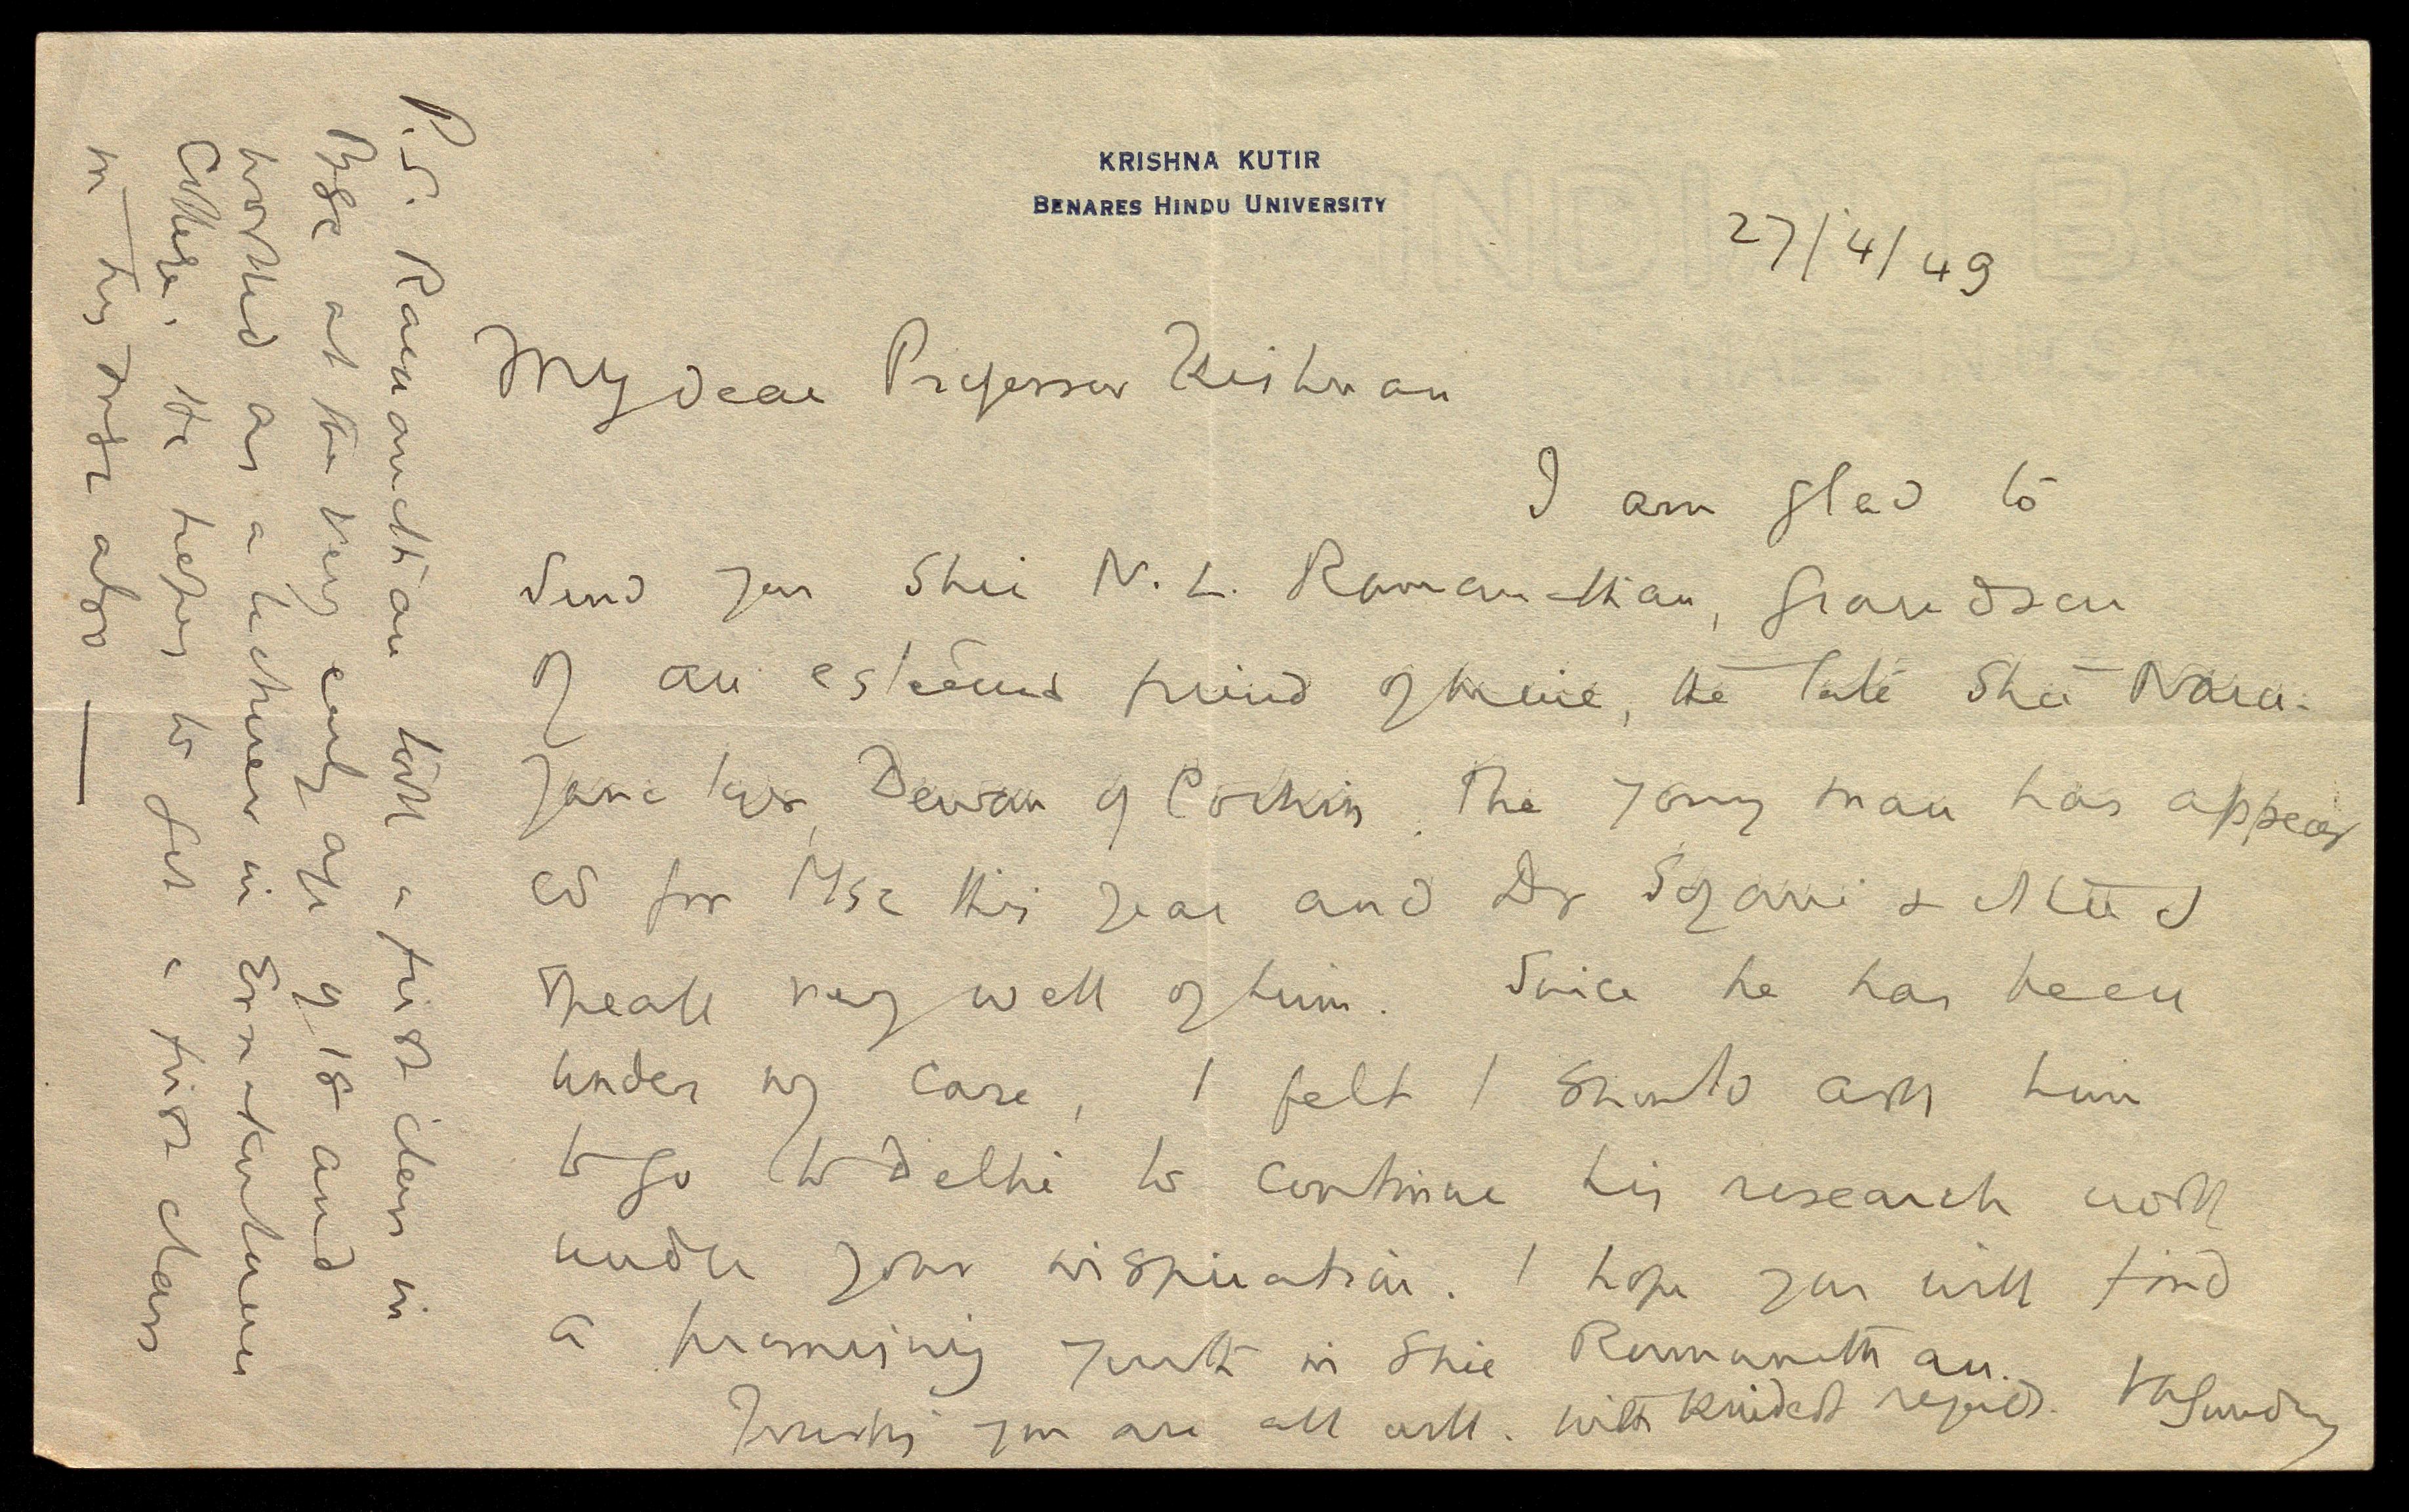 KRISHNA KUTIR
BENARES HINDU UNIVERSITY
27/4/49
My dear Professor Krishnan
I am glad to
send you Shri N. L. Ramanathan, grandson
of an esteemed friend of mine, the late Shri Nara-
yana Iyer, Dewan of Cochin. The young man has appear
ed for MSc this year and Dr &
speak very well of him. Since he has been
under my care, I felt I should ask him
to go to Delhi to continue his research work
under your inspiration. I hope you will find
a promising youth in Shri Ramanathan.
Trusting you are all well. With kindest regards.
P.S. Ramanathan took a first class in
BSc at the very early age of 18 and
worked as a lecturer in Ernakulam
College. He hopes to get a first class
in his MSc also